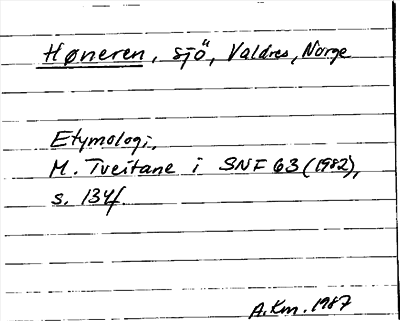 Høneren, sjö, Valdres, Norge
Etymologi,
M. Tveitane i SNF 63 (1982),
s. 134f.
A.Km. 1987